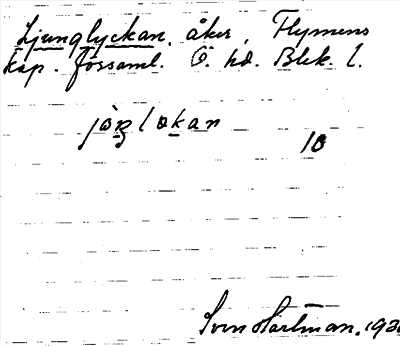 Ljunglyckan. åker, Flymens
kap. församl. Ö. hd. Blek. l.
jòŋlokan
10
Sven Hartman. 193